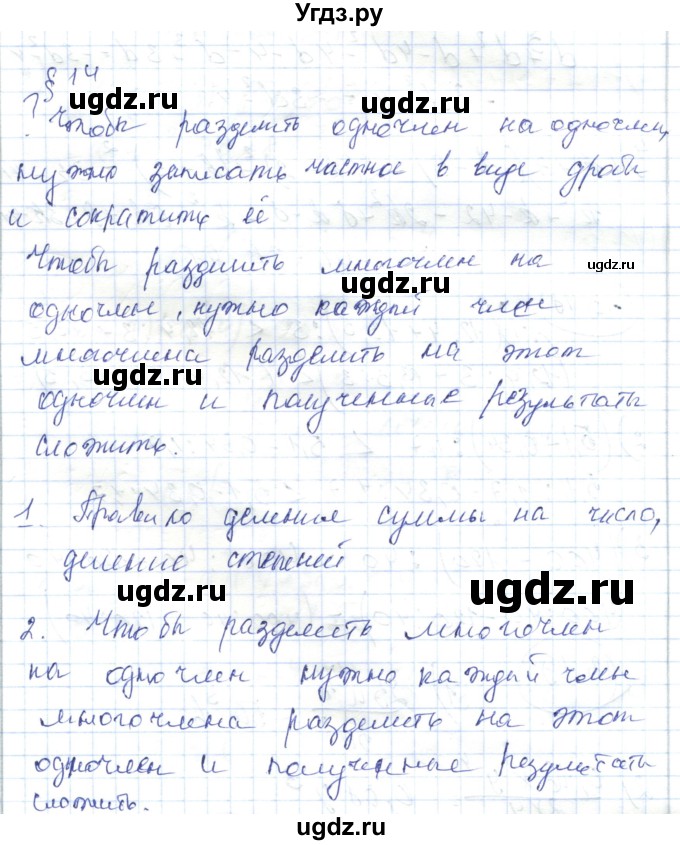 Угдз.ру
§ 14
? Чтобы разделить одночлен на одночлен,
нужно записать частное в виде дроби
и сократить её
Чтобы разделить многочлен на
одночлен, нужно каждый член
многочлена разделить на этот
одночлен и полученные результаты
сложить.
1. Правило деления суммы на число,
деление степеней
2. Чтобы разделить многочлен
на одночлен нужно каждый член
многочлена разделить на этот
одночлен и полученные результаты
сложить.
ugdz.ru
ugdz.ru
ugdz.ru
ugdz.ru
ugdz.ru
ugdz.ru
ugdz.ru
ugdz.ru
ugdz.ru
ugdz.ru
ugdz.ru